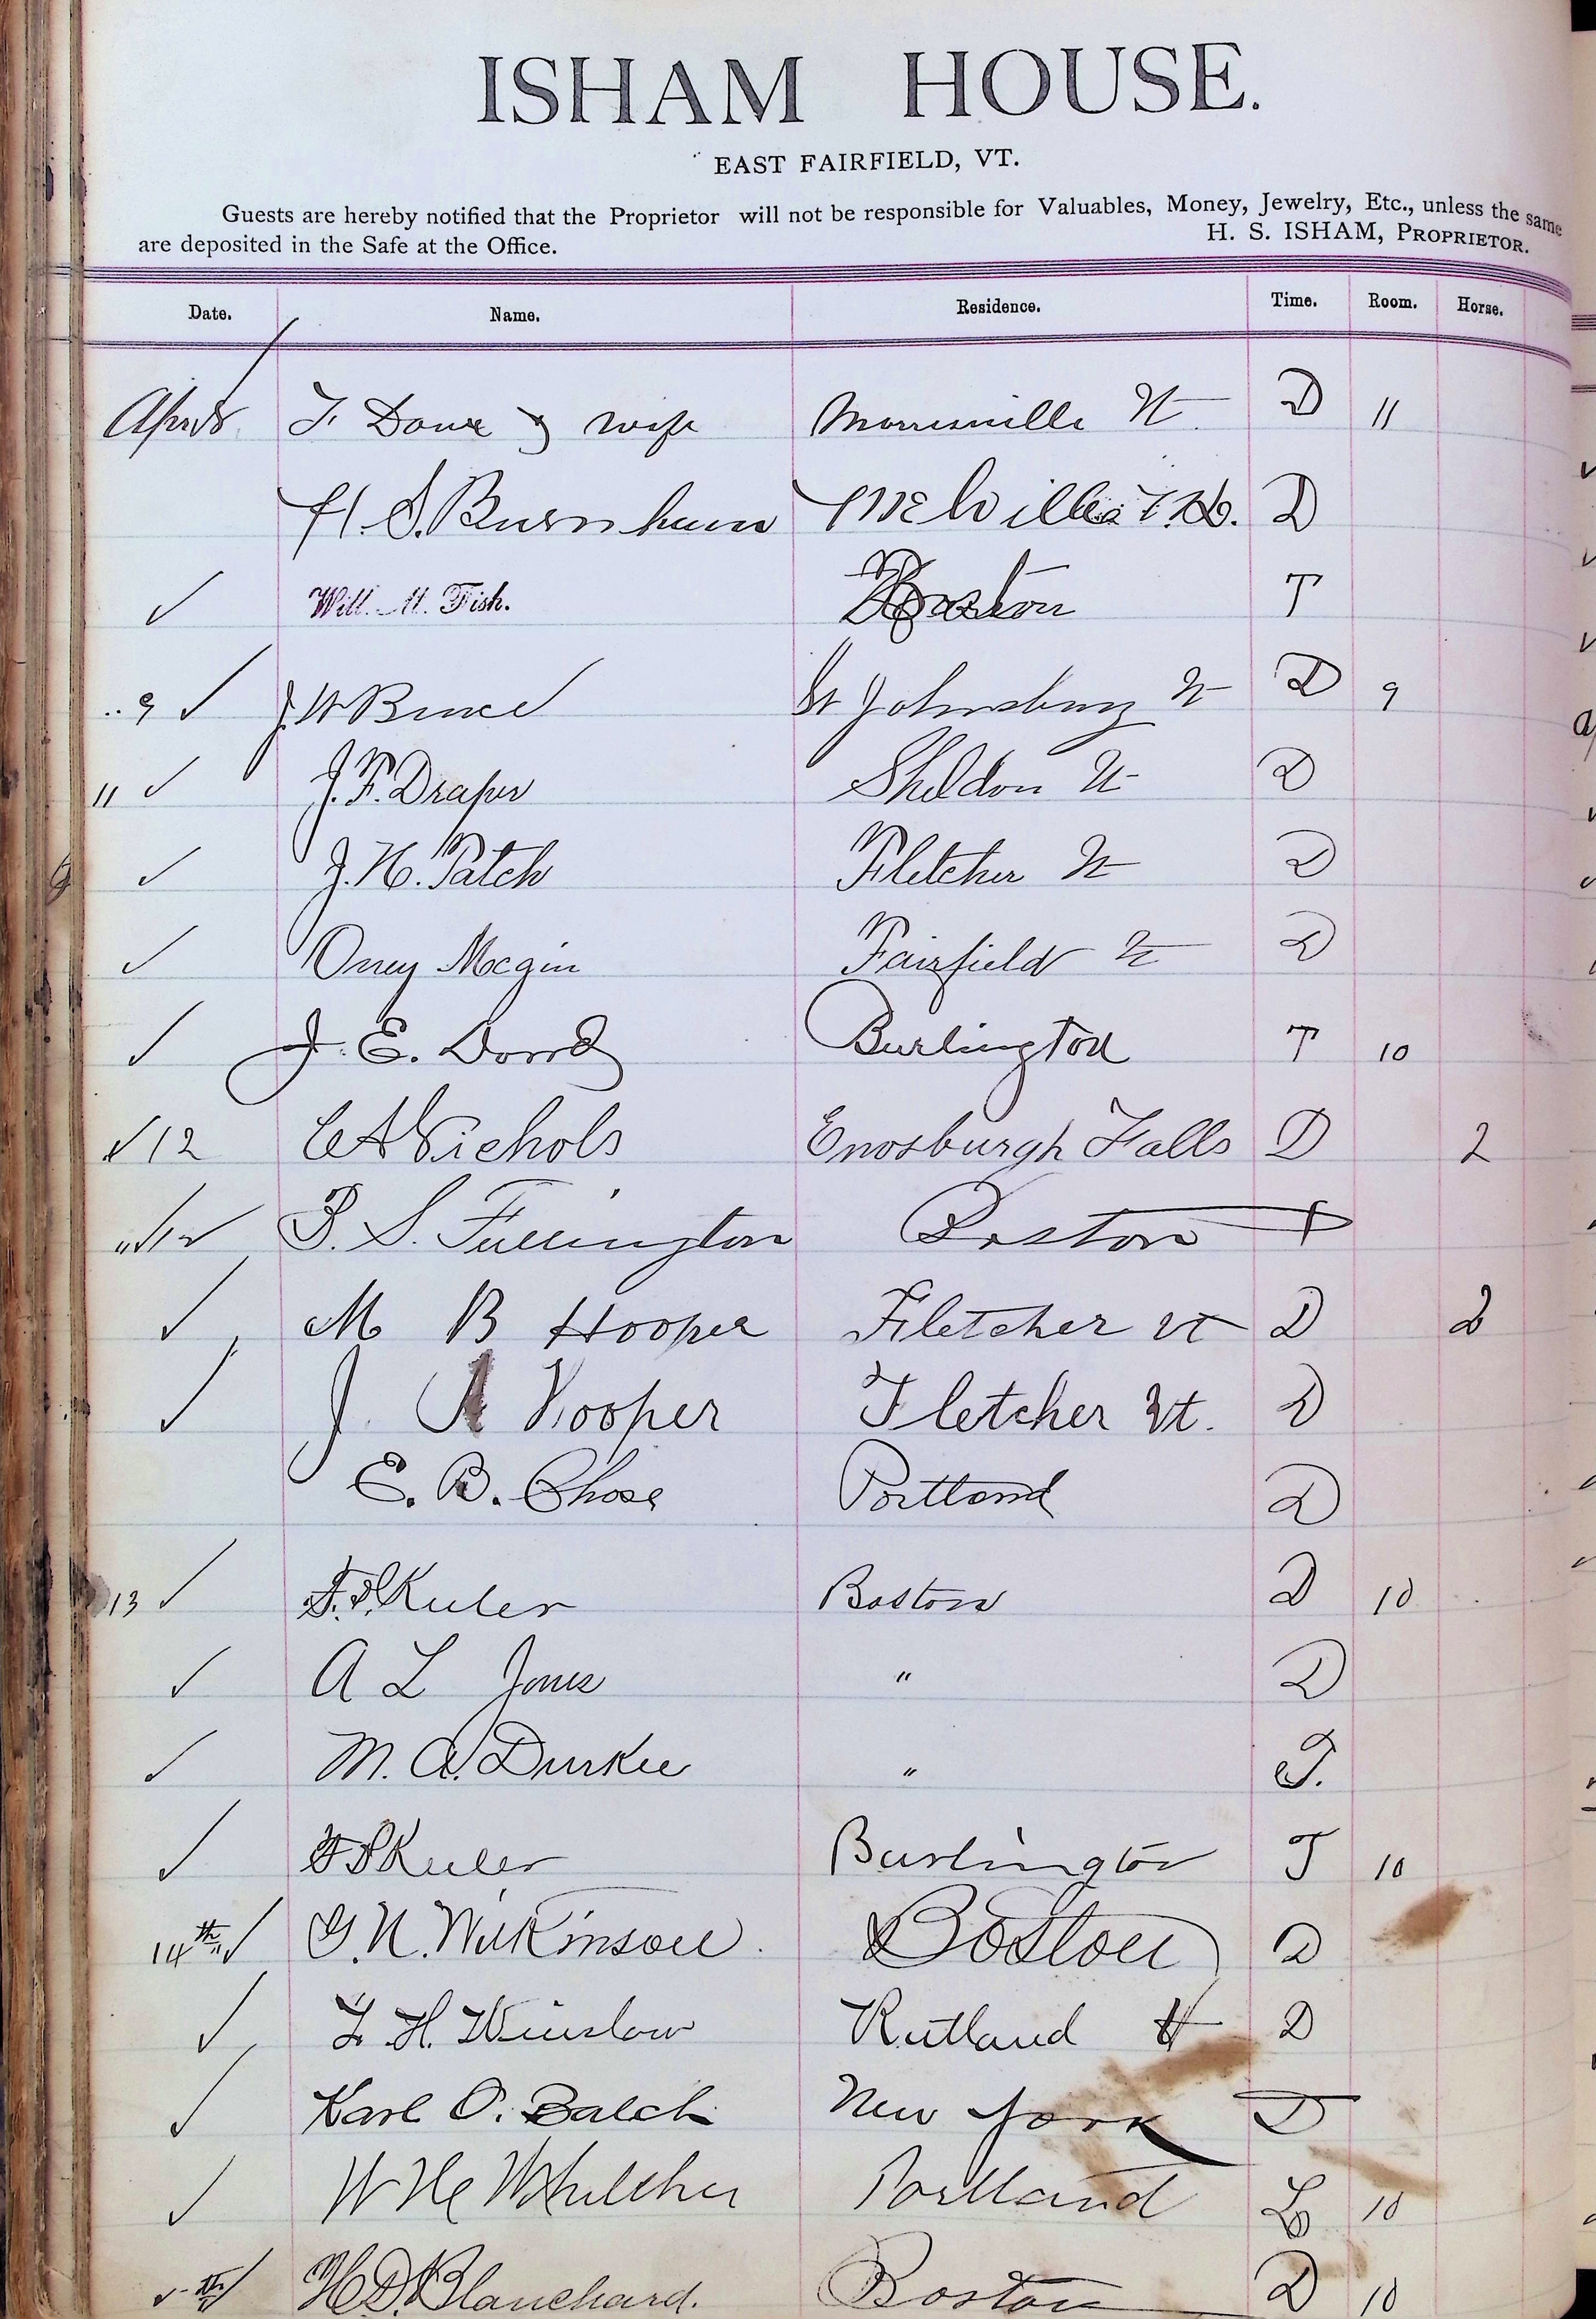 ISHAM HOUSE.
EAST FAIRFIELD, VT.
Guests are hereby notified that the Proprietor will not be responsible for Valuables, Money, Jewelry, Etc., unless the same
are deposited in the Safe at the Office.
H. S. ISHAM, PROPRIETOR.
Date. Name. Residence. Time. Room. Horse.
April 8 & wife Morrisville Vt D 11
H. S. Burnham D
✓ Will. H. Fish. Boston T
.. 9 ✓ J W Bruce St Johnsbury Vt D 9
11 ✓ J. F. Draper Sheldon Vt D
✓ J. H. Patch Fletcher Vt D
✓ Oney Mcgin Fairfield Vt D
✓ J. E. Burlington T 10
✓ 12 C A Nichols Enosburgh Falls D 2
" ✓ 12 B. S. Fullington Boston T
✓ M B Hooper Fletcher Vt D 2
✓ J A Hooper Fletcher Vt. D
E. B. Chase Portland D
13 ✓ Boston D 10
✓ A L Jones " D
✓ M. A. Durkee " T.
✓ Burlington T 10
14th ✓ G. N. Wilkinson. Boston D
✓ L. H. Winslow Rutland Vt D
✓ Karl O. Balch New York D
✓ W H Whitcher Portland L 10
H. D. Blanchard. Boston D 10